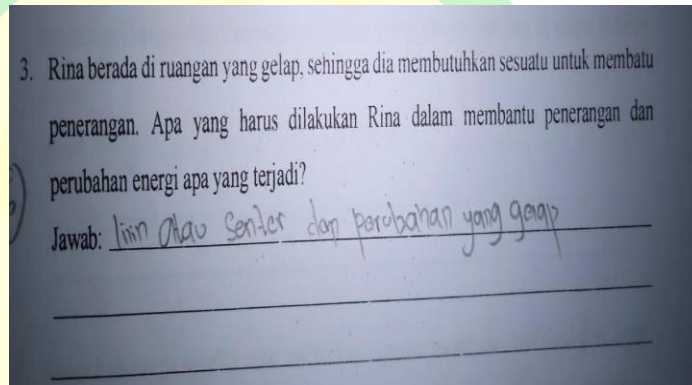 3. Rina berada di ruangan yang gelap, sehingga dia membutuhkan sesuatu untuk membatu
penerangan. Apa yang harus dilakukan Rina dalam membantu penerangan dan
perubahan energi apa yang terjadi?
Jawab: lilin atau Senter dan perubahan yang gelap